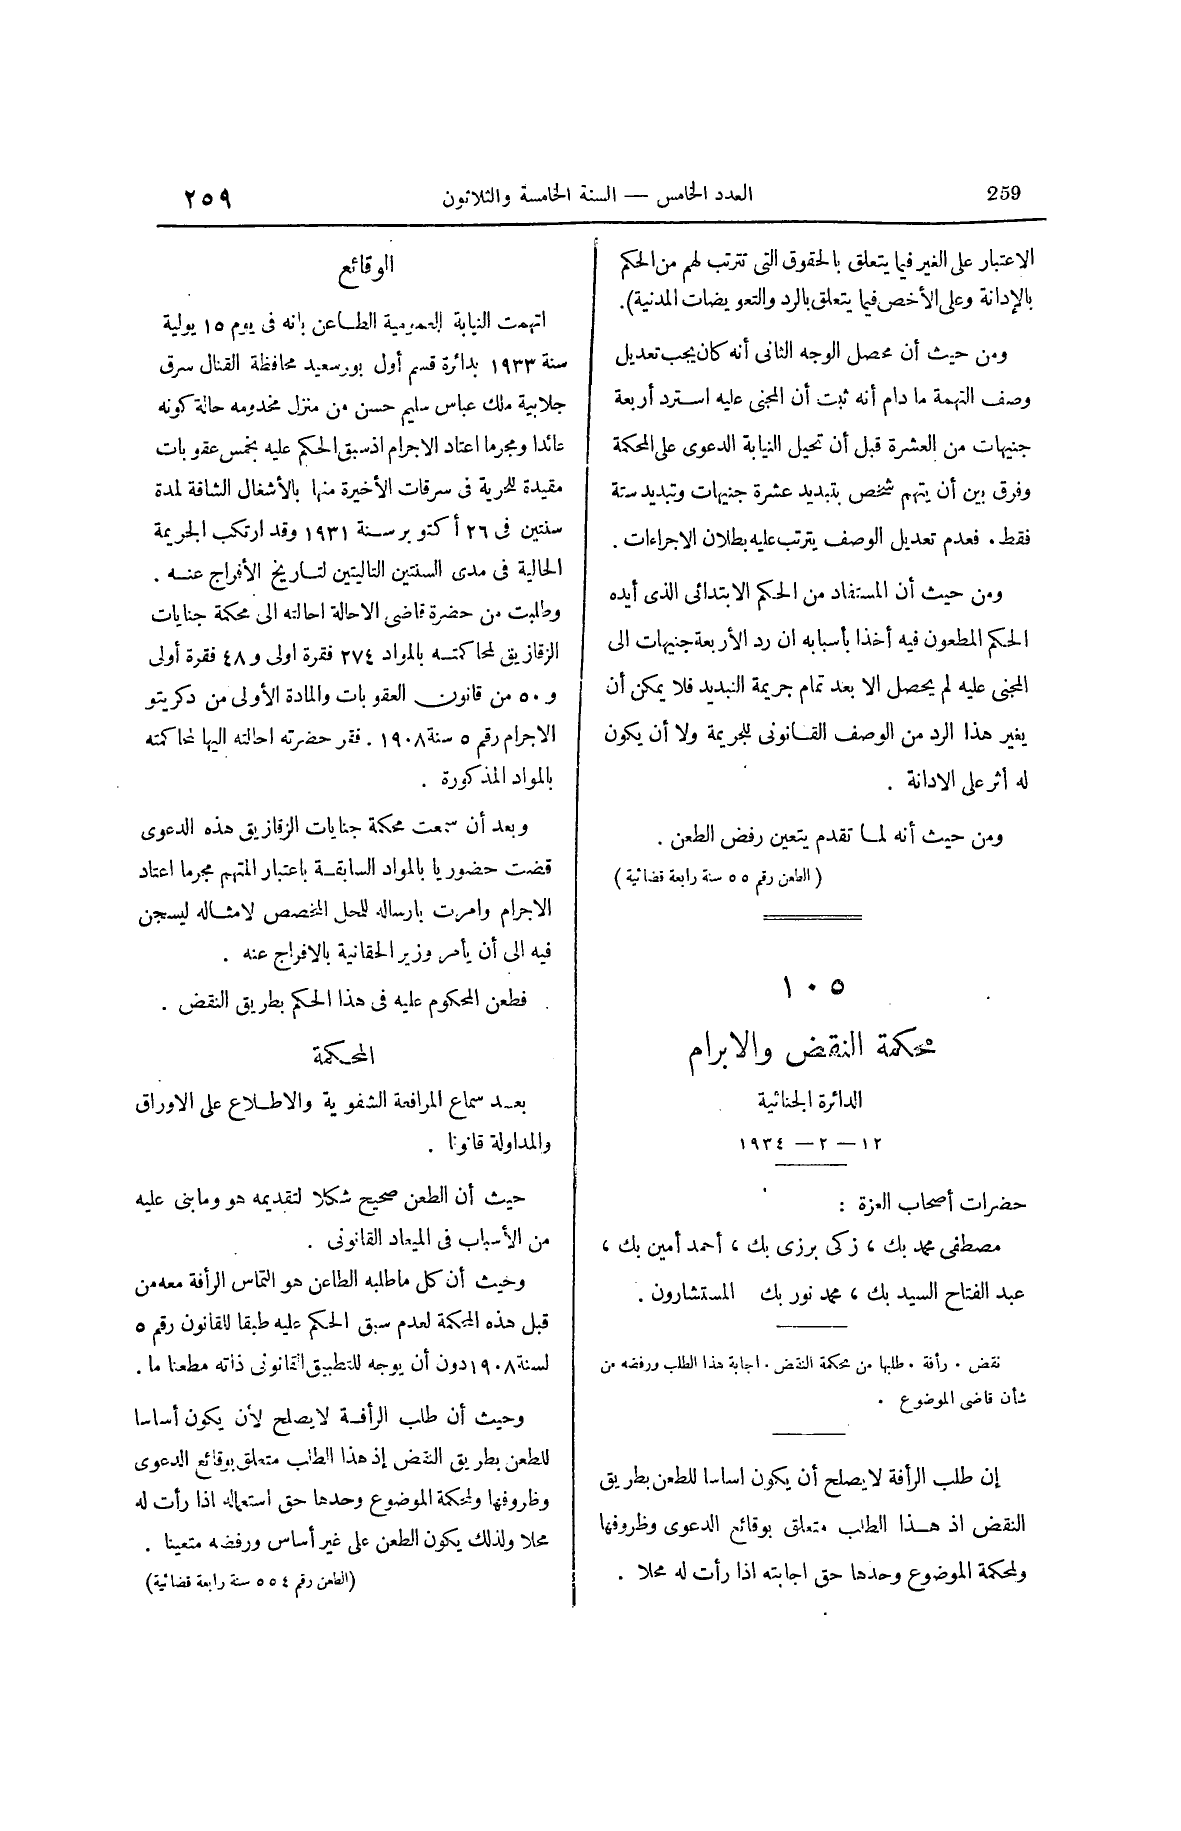 259
العدد الخامس — السنة الخامسة والثلاثون
٢٥٩
الاعتبار على الغير فيما يتعلق بالحقوق التى تترتب لهم من الحكم
بالإدانة وعلى الأخص فيما يتعلق بالرد والتعويضات المدنية).
ومن حيث أن محصل الوجه الثانى أنه كان يجب تعديل
وصف التهمة ما دام أنه ثبت أن المجنى عليه استرد أربعة
جنيهات من العشرة قبل أن تحيل النيابة الدعوى على المحكمة
وفرق بين أن يتهم شخص بتبديد عشرة جنيهات وتبديد ستة
فقط. فعدم تعديل الوصف يترتب عليه بطلان الاجراءات.
ومن حيث أن المستفاد من الحكم الابتدائى الذى أيده
الحكم المطعون فيه أخذا بأسبابه ان رد الأربعة جنيهات الى
المجنى عليه لم يحصل الا بعد تمام جريمة التبديد فلا يمكن أن
يغير هذا الرد من الوصف القانونى للجريمة ولا أن يكون
له أثر على الادانة.
ومن حيث أنه لما تقدم يتعين رفض الطعن.
(الطعن رقم ٥٥ سنة رابعة قضائية)
١٠٥
محكمة النقض والابرام
الدائرة الجنائية
١٢ — ٢ — ١٩٣٤
حضرات أصحاب العزة :
مصطفى محمد بك، زكى برزى بك، أحمد أمين بك،
عبد الفتاح السيد بك، محمد نور بك المستشارون.
نقض. رأفة. طلبها من محكمة النقض. اجابة هذا الطلب ورفضه من
شأن قاضى الموضوع.
إن طلب الرأفة لا يصلح أن يكون اساسا للطعن بطريق
النقض اذ هذا الطلب متعلق بوقائع الدعوى وظروفها
ولمحكمة الموضوع وحدها حق اجابته اذا رأت له محلا.
الوقائع
اتهمت النيابة العمومية الطاعن بانه فى يوم ١٥ يولية
سنة ١٩٣٣ بدائرة قسم أول بورسعيد محافظة القنال سرق
جلابية ملك عباس سليم حسن من منزل مخدومه حالة كونه
عائدا ومجرما اعتاد الاجرام اذ سبق الحكم عليه بخمس عقوبات
مقيدة للحرية فى سرقات الأخيرة منها بالأشغال الشاقة لمدة
سنتين فى ٢٦ أكتوبر سنة ١٩٣١ وقد ارتكب الجريمة
الحالية فى مدى السنتين التاليتين لتاريخ الأفراج عنه.
وطلبت من حضرة قاضى الاحالة احالته الى محكمة جنايات
الزقازيق لمحاكمته بالمواد ٢٧٤ فقرة اولى و ٤٨ فقرة أولى
و ٥٠ من قانون العقوبات والمادة الأولى من دكريتو
الاجرام رقم ٥ سنة ١٩٠٨. فقرر حضرته احالته اليها لمحاكمته
بالمواد المذكورة.
وبعد أن سمعت محكمة جنايات الزقازيق هذه الدعوى
قضت حضوريا بالمواد السابقة باعتبار المتهم مجرما اعتاد
الاجرام وامرت بارساله للمحل المخصص لامثاله ليسجن
فيه الى أن يأمر وزير الحقانية بالافراج عنه.
فطعن المحكوم عليه فى هذا الحكم بطريق النقض.
المحكمة
بعد سماع المرافعة الشفوية والاطلاع على الاوراق
والمداولة قانونا.
حيث أن الطعن صحيح شكلا لتقديمه هو وما بنى عليه
من الأسباب فى الميعاد القانونى.
وحيث أن كل ما طلبه الطاعن هو التماس الرأفة معه من
قبل هذه المحكمة لعدم سبق الحكم عليه طبقا للقانون رقم ٥
لسنة ١٩٠٨ دون أن يوجه للتطبيق القانونى ذاته مطعنا ما.
وحيث أن طلب الرأفة لا يصلح لأن يكون أساسا
للطعن بطريق النقض إذ هذا الطلب متعلق بوقائع الدعوى
وظروفها ولمحكمة الموضوع وحدها حق استعماله اذا رأت له
محلا ولذلك يكون الطعن على غير أساس ورفضه متعينا.
(الطعن رقم ٥٥٤ سنة رابعة قضائية)